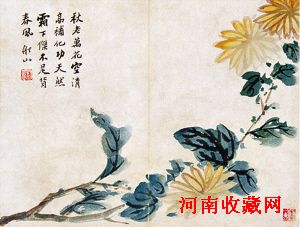 秋老萬花空清
高補化功天然
霜下傑不是背
春風 秋山
河南收藏网